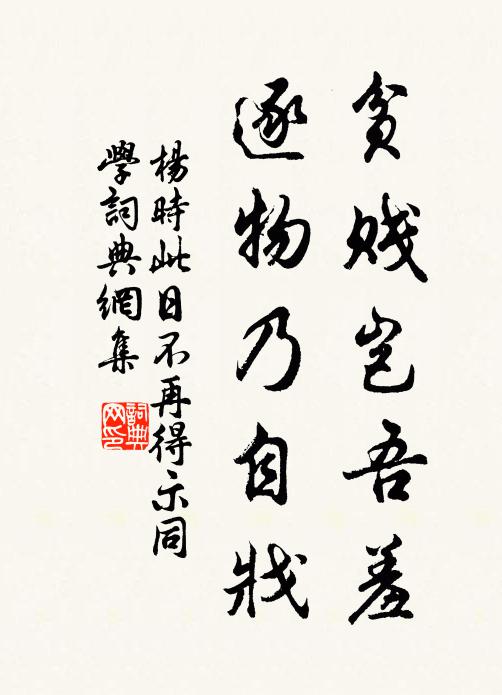 貧賤豈吾羞
逐物乃自戕
楊時此日不再得示同
學詞典網集
詞典
网印